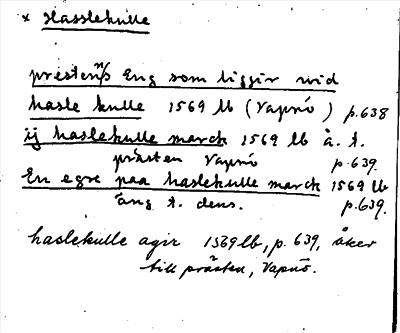 x Hasslekulle
prestenns Eng som ligger wid
hasle kulle 1569 lb (Vapnö) p.638
ij haslekulle march 1569 lb å. t.
prästen Vapnö p.639.
En egre paa haslekulle march 1569 lb
äng t. dens. p.639.
haslekulle agir 1569 lb, p. 639, åker
till prästen, Vapnö.